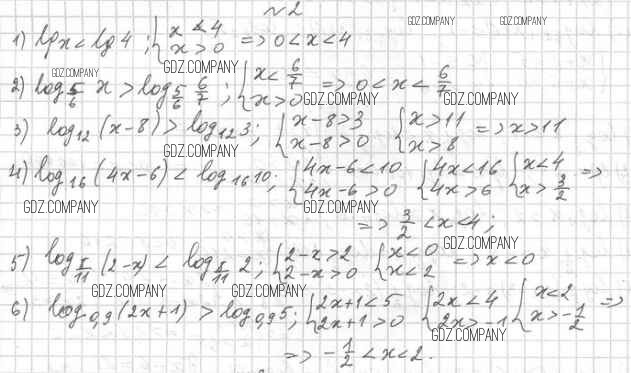 №2
1) lg x < lg 4 ; { x < 4 x > 0 => 0 < x < 4
GDZ.COMPANY
GDZ.COMPANY GDZ.COMPANY
2) log 5/6 x > log 5/6 6/7 ; { x < 6/7 x > 0 => 0 < x < 6/7
GDZ.COMPANY GDZ.COMPANY GDZ.COMPANY
3) log₁₂ (x-8) > log₁₂ 3; { x-8>3 x-8>0 { x>11 x>8 => x>11
GDZ.COMPANY
4) log₁₆ (4x-6) < log₁₆ 10; { 4x-6<10 4x-6>0 { 4x<16 4x>6 { x<4 x> 3/2 =>
GDZ.COMPANY GDZ.COMPANY
=> 3/2 < x < 4;
GDZ.COMPANY
5) log π/11 (2-x) < log π/11 2; { 2-x>2 2-x>0 { x<0 x<2 => x<0
GDZ.COMPANY GDZ.COMPANY
6) log₀,₉ (2x+1) > log₀,₉ 5; { 2x+1<5 2x+1>0 { 2x<4 2x>-1 { x<2 x>-1/2 =>
GDZ.COMPANY
=> -1/2 < x < 2.